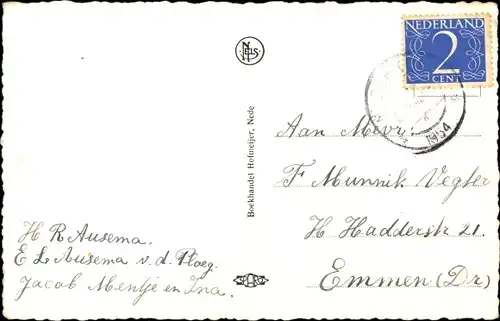 NEDERLAND
2
CENT
NELS
1954
Boekhandel Hofmeijer, Nede
Aan Mevr:
F Munnik Vegter
H Hadderstr 21.
Emmen (Dr)
H R Ausema.
E L Ausema v. d. Ploeg.
Jacob Mentje en Ina.